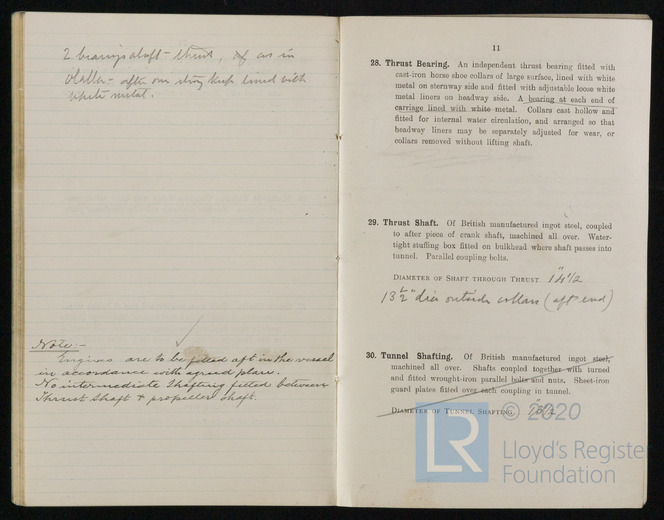 2 bearings abaft thrust, as in
after one strip kept lined with
white metal.
Note:-
Engines are to be fitted aft in the vessel
in accordance with agreed plans.
No intermediate Shafting fitted between
Thrust Shaft + propeller shaft.
11
28. Thrust Bearing. An independent thrust bearing fitted with
cast-iron horse shoe collars of large surface, lined with white
metal on sternway side and fitted with adjustable loose white
metal liners on headway side. A bearing at each end of
carriage lined with white metal. Collars cast hollow and
fitted for internal water circulation, and arranged so that
headway liners may be separately adjusted for wear, or
collars removed without lifting shaft.
29. Thrust Shaft. Of British manufactured ingot steel, coupled
to after piece of crank shaft, machined all over. Water-
tight stuffing box fitted on bulkhead where shaft passes into
tunnel. Parallel coupling bolts.
DIAMETER OF SHAFT THROUGH THRUST 14 1/2"
13 1/2" dia outside collars (aft end)
30. Tunnel Shafting. Of British manufactured ingot steel,
machined all over. Shafts coupled together with turned
and fitted wrought-iron parallel bolts and nuts. Sheet-iron
guard plates fitted over each coupling in tunnel.
DIAMETER OF TUNNEL SHAFTING.
© 2020
LR
Lloyd's Register
Foundation